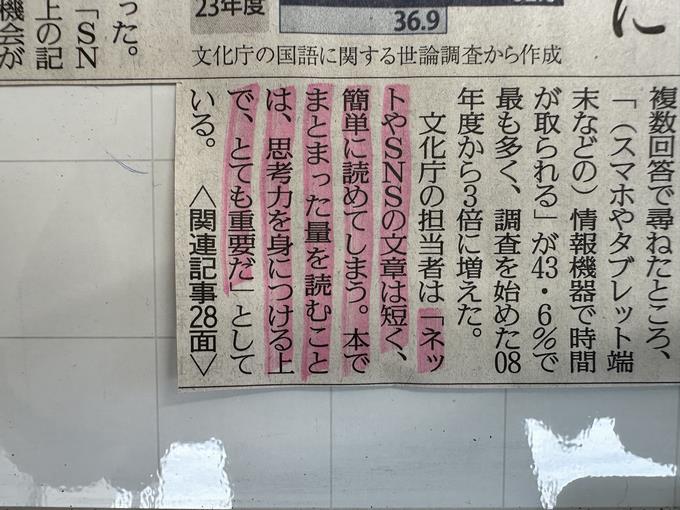 23年度
36.9
に
文化庁の国語に関する世論調査から作成
った。
「SN
上の記
機会が
複数回答で尋ねたところ、
「（スマホやタブレット端
末などの）情報機器で時間
が取られる」が43・6％で
最も多く、調査を始めた08
年度から3倍に増えた。
文化庁の担当者は「ネッ
トやSNSの文章は短く、
簡単に読めてしまう。本で
まとまった量を読むこと
は、思考力を身につける上
で、とても重要だ」として
いる。＜関連記事28面＞